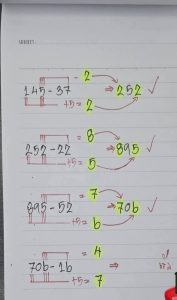 SUBJECT:
- 2
145 - 37 ⇒ 252 ✓
+5 = 2
= 8
252 - 22 ⇒ 895 ✓
+5 = 5
= 7
895 - 52 ⇒ 706 ✓
+5 = 6
= 4
706 - 16 ⇒
+5 = 7